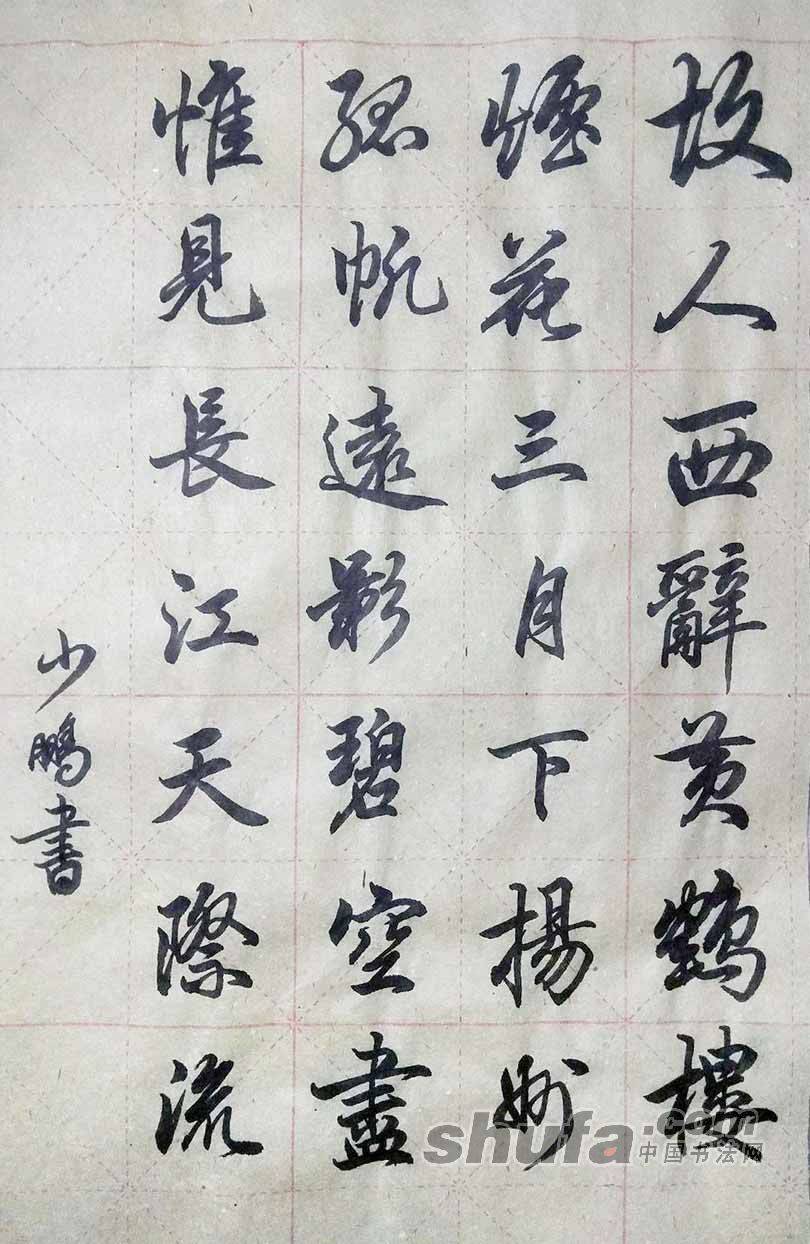 故人西辭黄鶴樓
煙花三月下揚州
孤帆遠影碧空盡
惟見長江天際流
少鵬書
shufa.com
中国书法网